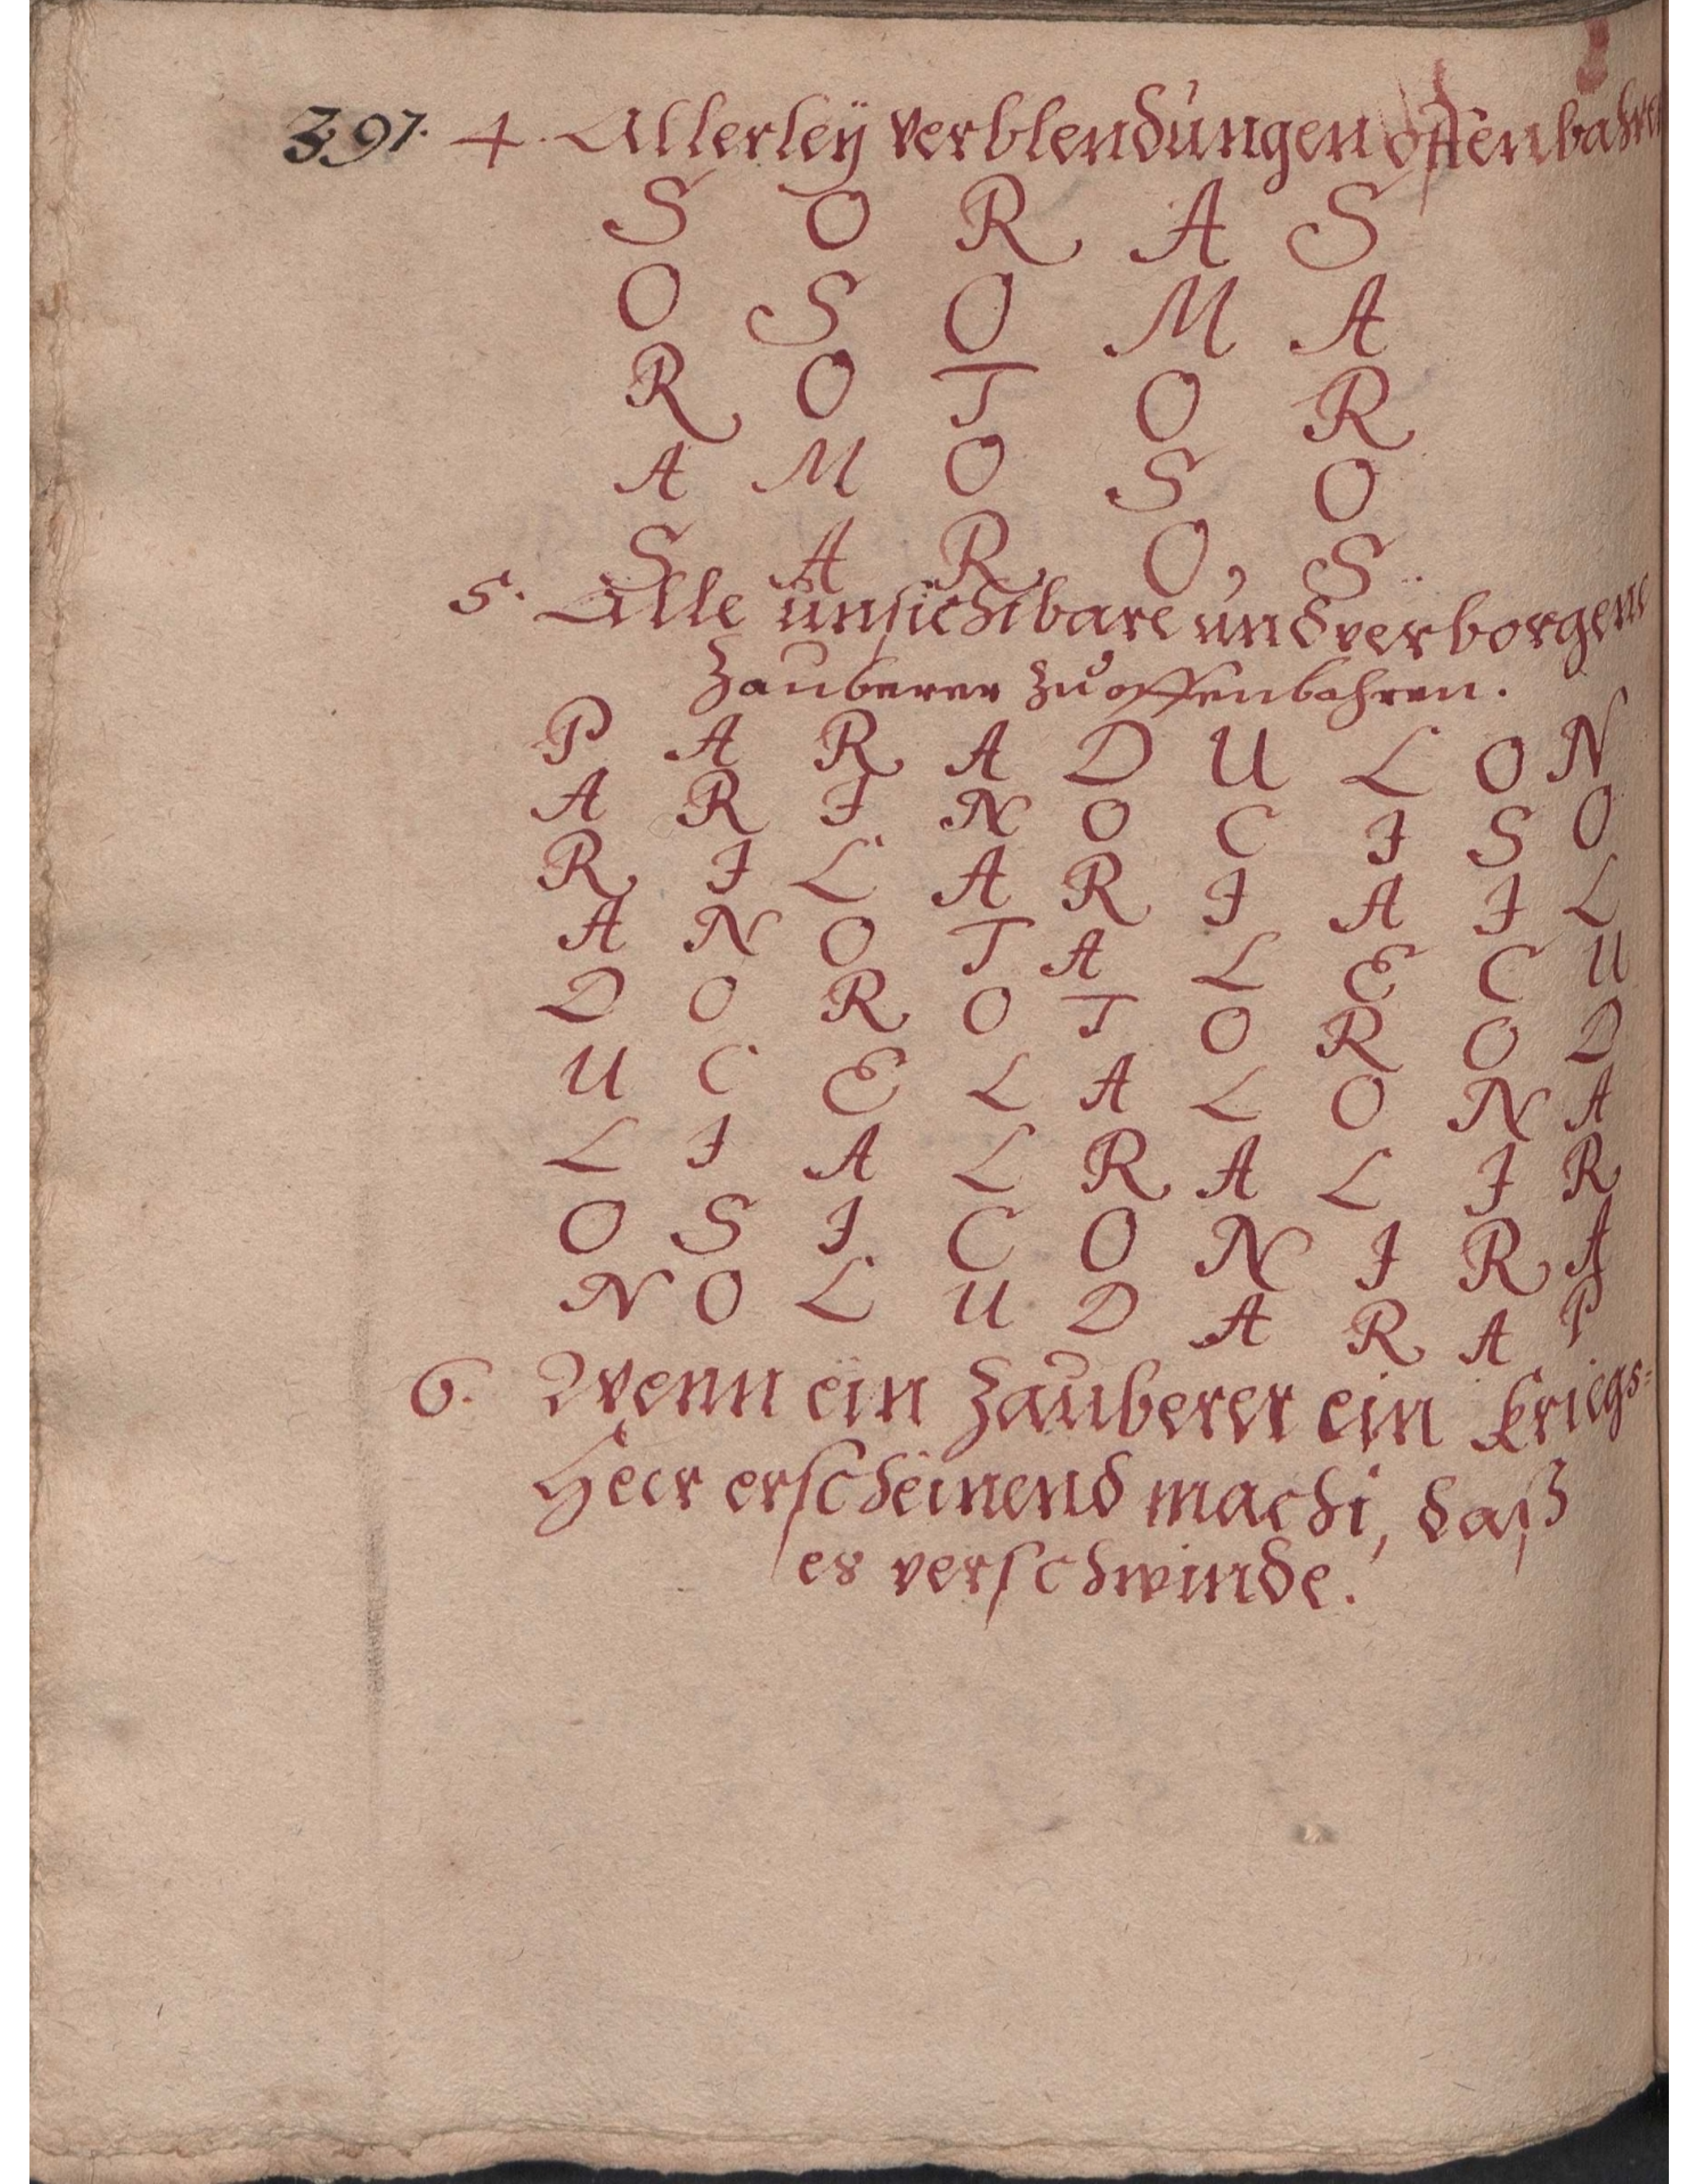 397. 4. Allerleÿ verblendungen offenbahren
S O R A S
O S O M A
R O T O R
A M O S O
S A R O S
5. Alle unsichtbare und verborgene
Zauberer zu offenbahren.
P A R A D U L O N
A R I N O C I S O
R I L A R I A I L
A N O T A L E C U
D O R O T O R O D
U C E L A L O N A
L I A L R A L I R
O S I C O N I R A
N O L U D A R A P
6. Wenn ein Zauberer ein Kriegs=
Heer erscheinend macht, daß
es verschwinde.